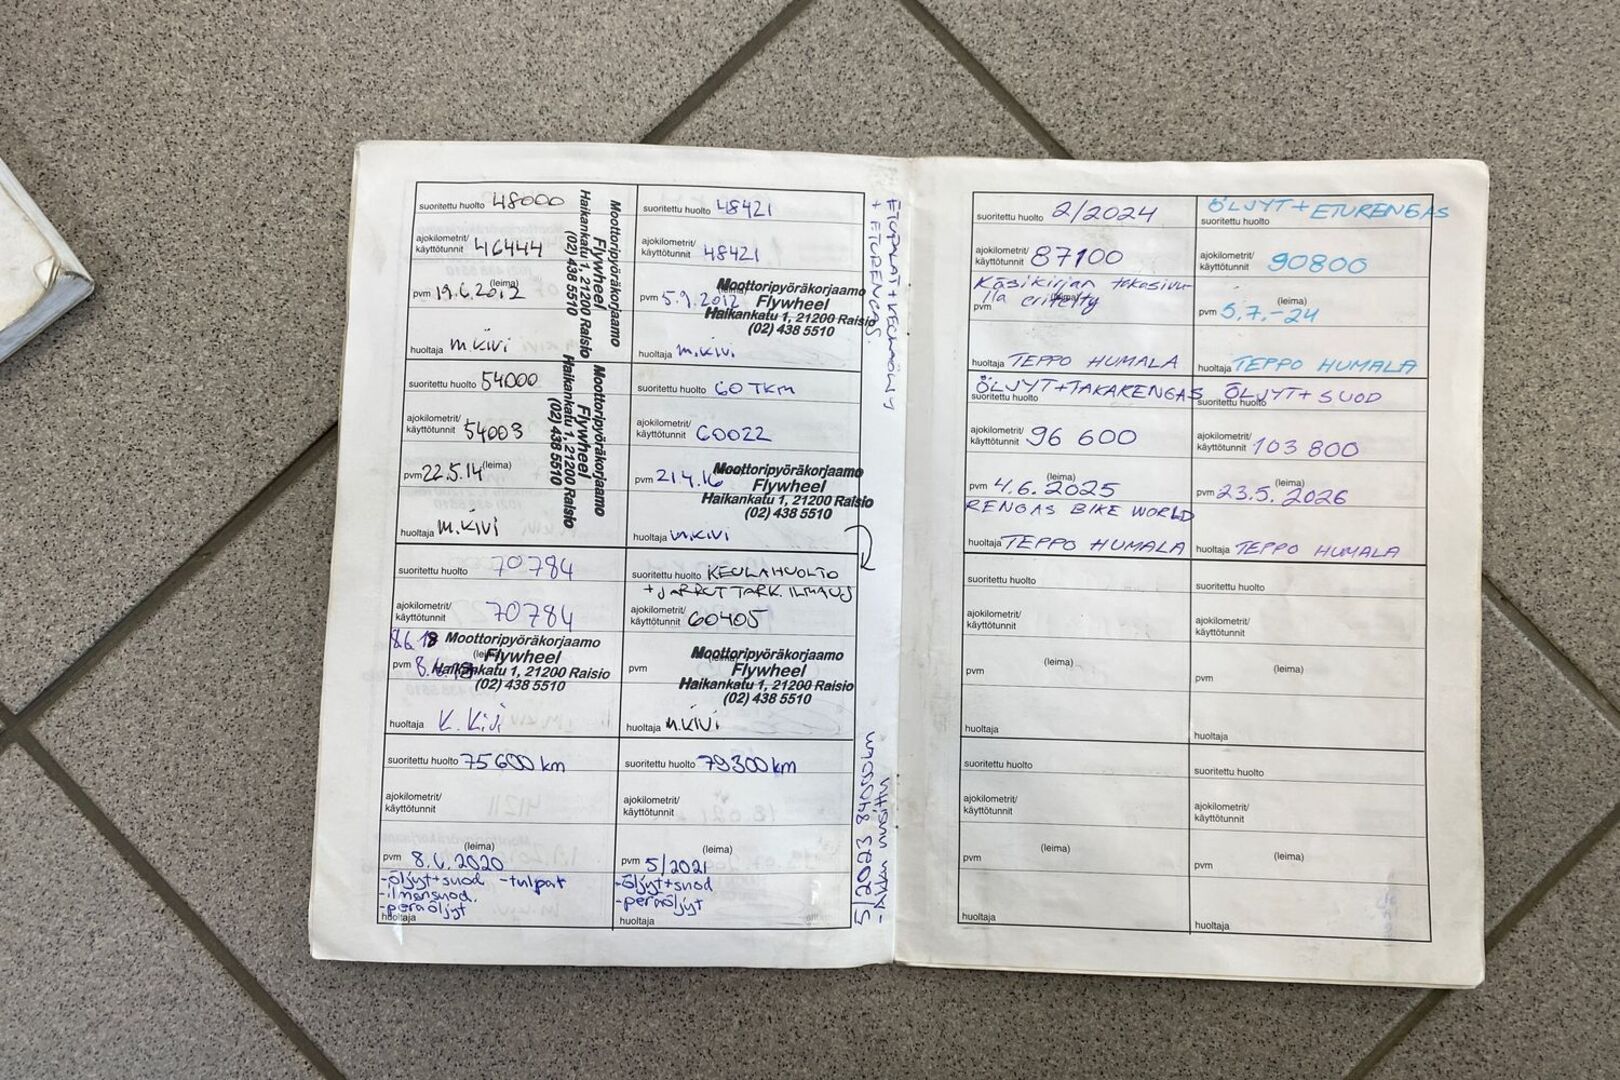 suoritettu huolto 48000
ajokilometrit/
käyttötunnit 46444
pvm 19.6.2012 (leima)
Moottoripyöräkorjaamo
Flywheel
Haikankatu 1, 21200 Raisio
(02) 438 5510
huoltaja M.KIVI
suoritettu huolto 48421
ajokilometrit/
käyttötunnit 48421
pvm 5.9.2012
Moottoripyöräkorjaamo
Flywheel
Haikankatu 1, 21200 Raisio
(02) 438 5510
huoltaja M.KIVI
ETUPALAT + KEULAÖLJY
+ ETURENGAS
suoritettu huolto 54000
ajokilometrit/
käyttötunnit 54003
pvm 22.5.14 (leima)
Moottoripyöräkorjaamo
Flywheel
Haikankatu 1, 21200 Raisio
(02) 438 5510
huoltaja M.KIVI
suoritettu huolto 60 TKM
ajokilometrit/
käyttötunnit 60022
pvm 21.4.16
Moottoripyöräkorjaamo
Flywheel
Haikankatu 1, 21200 Raisio
(02) 438 5510
huoltaja M.KIVI
suoritettu huolto 70784
ajokilometrit/
käyttötunnit 70784
8.6.18
pvm 8.6.18
Moottoripyöräkorjaamo
Flywheel
Haikankatu 1, 21200 Raisio
(02) 438 5510
huoltaja K. Kivi
suoritettu huolto KEULAHUOLTO
+ JARRUT TARK. ILMAUS
ajokilometrit/
käyttötunnit 60405
pvm
Moottoripyöräkorjaamo
Flywheel
Haikankatu 1, 21200 Raisio
(02) 438 5510
huoltaja M.KIVI
suoritettu huolto 75600 km
ajokilometrit/
käyttötunnit
(leima)
pvm 8.6.2020
-öljyt+suod -tulpat
-ilmansuod.
-peräöljyt
huoltaja
suoritettu huolto 79300 km
ajokilometrit/
käyttötunnit
(leima)
pvm 5/2021
-öljyt+suod
-peräöljyt
huoltaja
5/2023 84000km
suoritettu huolto 2/2024
ajokilometrit/
käyttötunnit 87100
Käsikirjan takasivu-
lla eritelty
pvm (leima)
huoltaja TEPPO HUMALA
ÖLJYT + ETURENGAS
suoritettu huolto
ajokilometrit/
käyttötunnit 90800
(leima)
pvm 5.7.-24
huoltaja TEPPO HUMALA
ÖLJYT+TAKARENGAS
suoritettu huolto
ajokilometrit/
käyttötunnit 96 600
(leima)
pvm 4.6.2025
RENGAS BIKE WORLD
huoltaja TEPPO HUMALA
ÖLJYT + SUOD
suoritettu huolto
ajokilometrit/
käyttötunnit 103 800
(leima)
pvm 23.5.2026
huoltaja TEPPO HUMALA
suoritettu huolto
ajokilometrit/
käyttötunnit
(leima)
pvm
huoltaja
suoritettu huolto
ajokilometrit/
käyttötunnit
(leima)
pvm
huoltaja
suoritettu huolto
ajokilometrit/
käyttötunnit
(leima)
pvm
huoltaja
suoritettu huolto
ajokilometrit/
käyttötunnit
(leima)
pvm
huoltaja